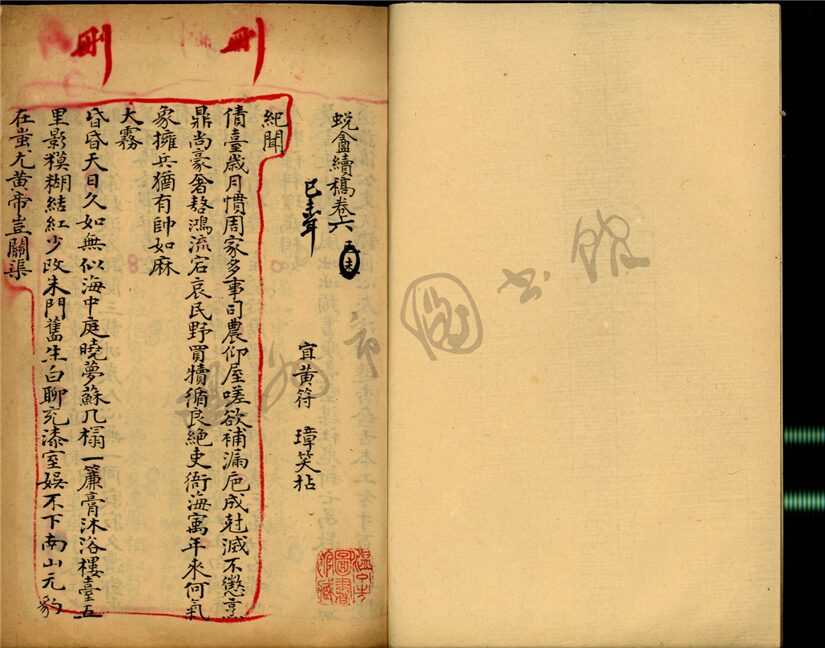 蜕盦續稿卷六
宜黃符璋笑拈
紀聞
債臺歲月慣周家多事司農仰屋嗟欲補漏卮成尅減不懲烹
鼎尚豪奢嗸鴻流宕哀民野買犢循良絕吏衙海寓年來何氣
象擁兵猶有帥如麻
大霧
昏昏天日久如無似海中庭曉夢蘇几榻一簾膏沐浴樓臺五
里影糢糊結紅少改朱門舊生白聊充漆室娛不下南山元豹
在蚩尤黃帝豈關渠
刪
刪